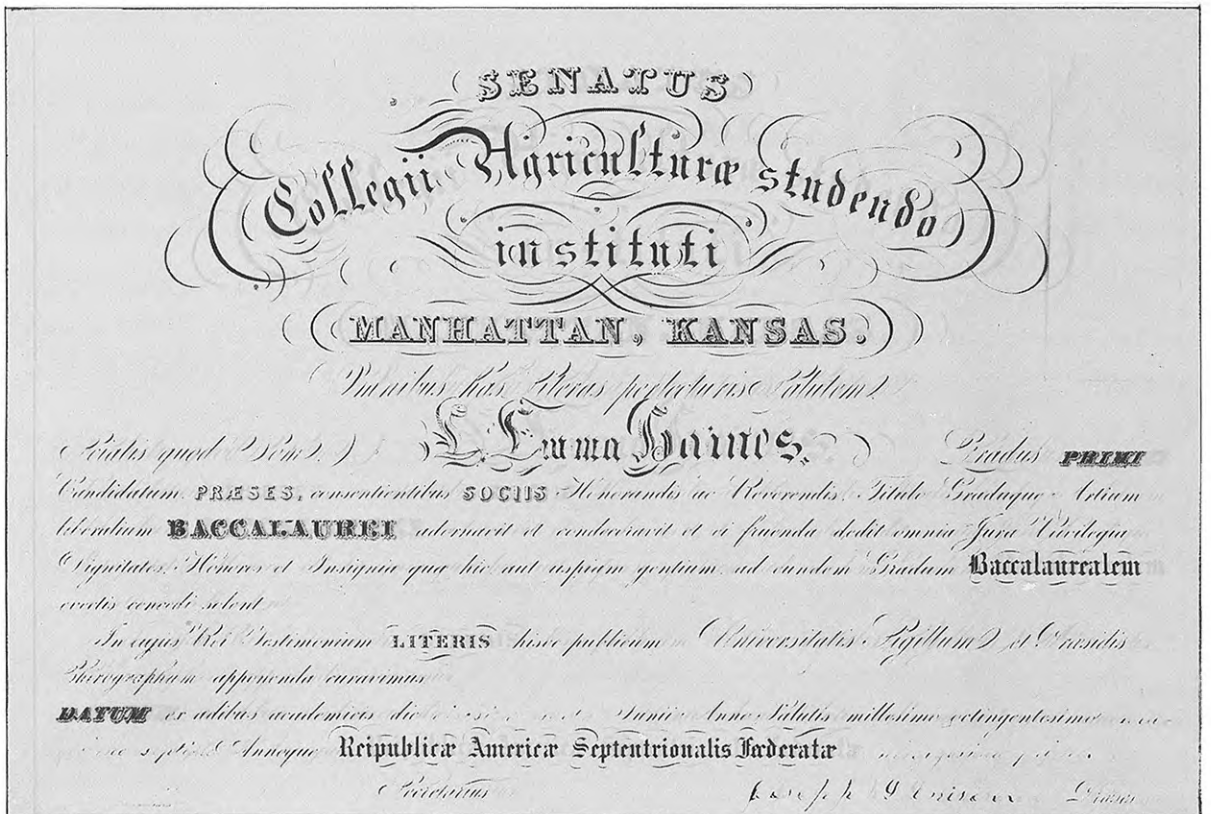 SENATUS
Collegii Agriculturæ studendo
instituti
MANHATTAN, KANSAS.
Omnibus has Literas perlecturis Salutem
L. Emma Haines,
Sciatis quod Gradus PRIMI
Candidatum PRÆSES, consentientibus SOCIIS Honorandis ac Reverendis, Titulo Graduque Artium
liberalium BACCALAUREI adornavit et condecoravit et ei fruenda dedit omnia Jura Privilegia
Dignitates, Honores et Insignia quæ hic aut uspiam gentium ad eundem Gradum Baccalaurealem
evectis concedi solent
In cujus Rei Testimonium LITERIS hisce publicum Universitatis Sigillum et Præsidis
Chirographum apponenda curavimus
DATUM ex ædibus academicis die Junii Anno Salutis millesimo octingentesimo
Annoque Reipublicæ Americæ Septentrionalis Fœderatæ
Secretarius Joseph Denison Præses